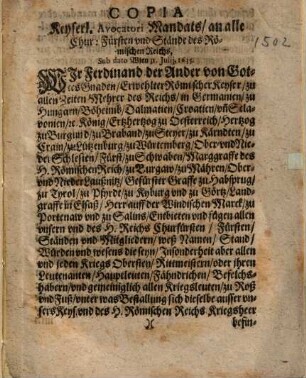 COPIA
Keyserl. Avocatori Mandats/ an alle
Chur: Fürsten vnd Stände des Rö-
mischen Reichs,
Sub dato Wien Julij, 1635.
1502
WIr Ferdinand der Ander von Got-
tes Gnaden/ Erwehlter Römischer Keyser/ zu
allen Zeiten Mehrer des Reichs/ in Germanien/ zu
Hungarn/ Böheimb/ Dalmatien/ Croatien/ vñ Scla-
vonien/ rc. König/ Ertzhertzog zu Oesterreich/ Hertzog
zu Burgund/ zu Braband/ zu Steyer/ zu Kärndten/ zu
Crain/ zu Lützenburg/ zu Würtemberg/ Ober vnd Nie-
der Schlesien/ Fürst/ zu Schwaben/ Marggraffe des
H. Römischen Reich/ zu Burgaw/ zu Mähren/ Ober-
vnd Nieder Laußnitz/ Gefürster Graffe zu Habspurg/
zu Tyrol/ zu Pfyrdt/ zu Kyburg vnd zu Görtz/ Land-
graffe in Elsaß/ Herr auff der Windischen Marck/ zu
Portenaw vnd zu Salins/ Entbieten vnd fügen allen
vnsern vnd des H. Reichs Churfürsten / Fürsten/
Ständen vnd Mitgliedern/ weß Namen/ Stand/
Würden vnd wesens die seyn/ Insonderheit aber allen
vnd jeden Kriegs Obersten/ Ritmeistern/ oder ihren
Leutenanten/ Hauptleuten/ Fähndrichen/ Befelchs-
habern/ vnd gemeiniglich allen Kriegsleuten/ zu Roß
vnd Fuß/ vnter was Bestallung sich dieselbe ausser vn-
sers Keys. vnd des H. Römischen Reichs Kriegsheer
befin-